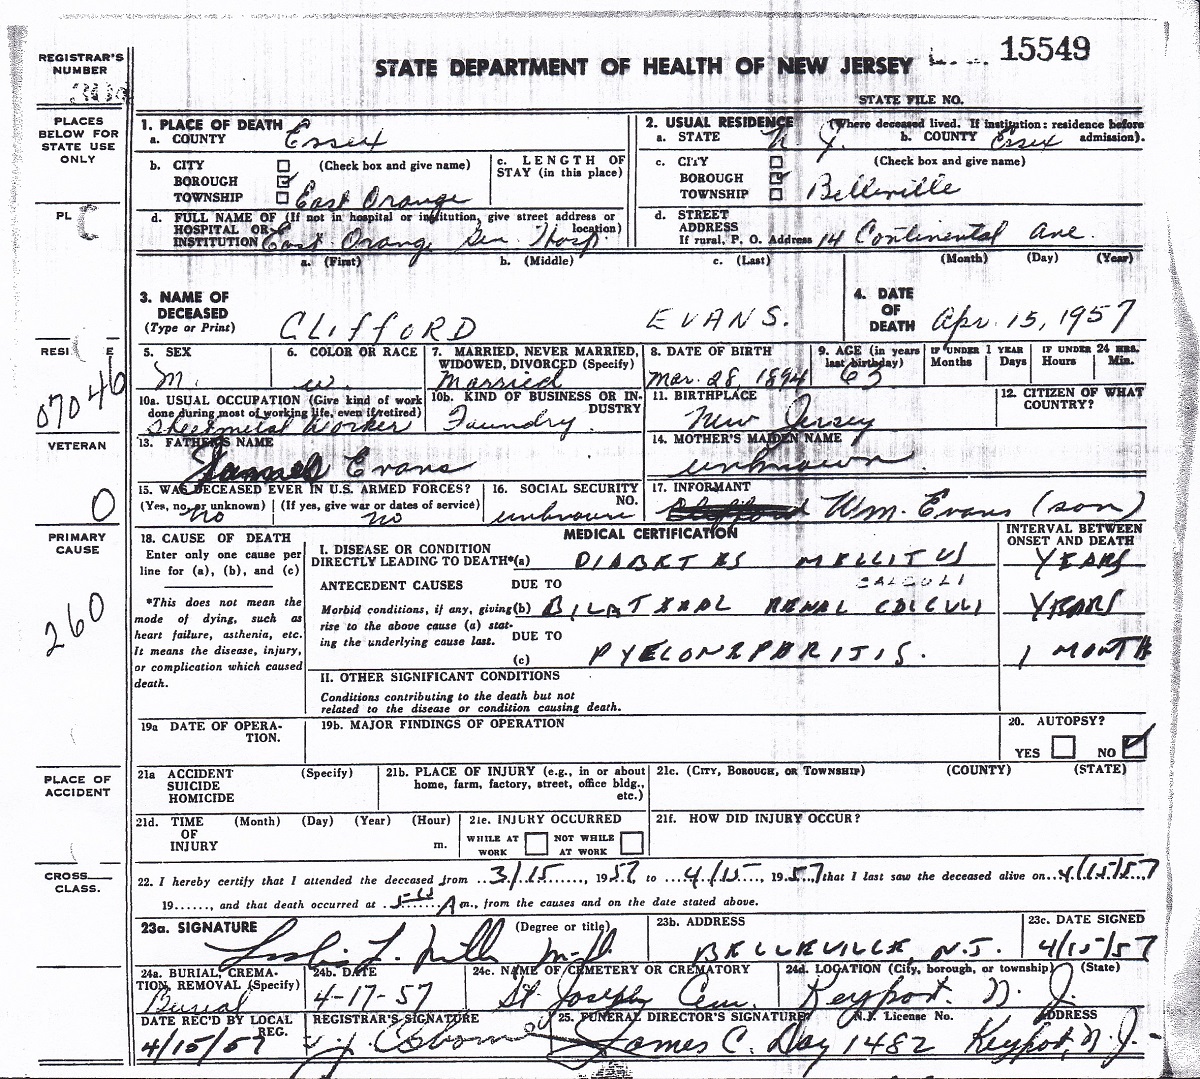 STATE DEPARTMENT OF HEALTH OF NEW JERSEY
15549
STATE FILE NO.
REGISTRAR'S
NUMBER
PLACES
BELOW FOR
STATE USE
ONLY
PL C
RESI E
07046
VETERAN
0
PRIMARY
CAUSE
260
PLACE OF
ACCIDENT
CROSS
CLASS.
1. PLACE OF DEATH
a. COUNTY Essex
b. CITY
BOROUGH
TOWNSHIP
(Check box and give name)
East Orange
c. LENGTH OF
STAY (in this place)
d. FULL NAME OF (If not in hospital or institution, give street address or
HOSPITAL OR location)
INSTITUTION East Orange Gen. Hosp.
2. USUAL RESIDENCE (Where deceased lived. If institution: residence before
a. STATE N. J. b. COUNTY Essex admission).
c. CITY
BOROUGH
TOWNSHIP
(Check box and give name)
Belleville
d. STREET
ADDRESS
If rural, P. O. Address 14 Continental Ave.
3. NAME OF
DECEASED
(Type or Print)
a. (First) b. (Middle) c. (Last)
CLIFFORD EVANS.
4. DATE
OF
DEATH
(Month) (Day) (Year)
Apr. 15, 1957
5. SEX
M.
6. COLOR OR RACE
W.
7. MARRIED, NEVER MARRIED,
WIDOWED, DIVORCED (Specify)
Married
8. DATE OF BIRTH
Mar. 28, 1894
9. AGE (in years
last birthday)
63
IF UNDER 1 YEAR
Months Days
IF UNDER 24 HRS.
Hours Min.
10a. USUAL OCCUPATION (Give kind of work
done during most of working life, even if retired)
Sheetmetal Worker
10b. KIND OF BUSINESS OR IN-
DUSTRY
Foundry.
11. BIRTHPLACE
New Jersey
12. CITIZEN OF WHAT
COUNTRY?
13. FATHER'S NAME
James Evans
14. MOTHER'S MAIDEN NAME
unknown.
15. WAS DECEASED EVER IN U.S. ARMED FORCES?
(Yes, no, or unknown) (If yes, give war or dates of service)
No no
16. SOCIAL SECURITY
NO.
unknown
17. INFORMANT
Clifford Wm. Evans (son)
18. CAUSE OF DEATH
Enter only one cause per
line for (a), (b), and (c)
*This does not mean the
mode of dying, such as
heart failure, asthenia, etc.
It means the disease, injury,
or complication which caused
death.
MEDICAL CERTIFICATION
INTERVAL BETWEEN
ONSET AND DEATH
I. DISEASE OR CONDITION
DIRECTLY LEADING TO DEATH*(a) DIABETES MELLITUS YEARS
ANTECEDENT CAUSES DUE TO CALCULI
Morbid conditions, if any, giving (b) BILATERAL RENAL COLCULI YEARS
rise to the above cause (a) stat-
ing the underlying cause last. DUE TO
(c) PYELONEPHRITIS. 1 MONTH
II. OTHER SIGNIFICANT CONDITIONS
Conditions contributing to the death but not
related to the disease or condition causing death.
19a DATE OF OPERA-
TION.
19b. MAJOR FINDINGS OF OPERATION
20. AUTOPSY?
YES NO
21a ACCIDENT (Specify)
SUICIDE
HOMICIDE
21b. PLACE OF INJURY (e.g., in or about
home, farm, factory, street, office bldg.,
etc.)
21c. (CITY, BOROUGH, OR TOWNSHIP) (COUNTY) (STATE)
21d. TIME (Month) (Day) (Year) (Hour)
OF
INJURY m.
21e. INJURY OCCURRED
WHILE AT NOT WHILE
WORK AT WORK
21f. HOW DID INJURY OCCUR?
22. I hereby certify that I attended the deceased from 3/15, 1957, to 4/15, 1957 that I last saw the deceased alive on 4/15/57
19......, and that death occurred at A m., from the causes and on the date stated above.
23a. SIGNATURE (Degree or title)
M.D.
23b. ADDRESS
BELLEVILLE, N.J.
23c. DATE SIGNED
4/15/57
24a. BURIAL, CREMA-
TION, REMOVAL (Specify)
Burial
24b. DATE
4-17-57
24c. NAME OF CEMETERY OR CREMATORY
St. Josephs Cem.
24d. LOCATION (City, borough, or township) (State)
Keyport. N. J.
DATE REC'D BY LOCAL
REG.
4/15/57
REGISTRAR'S SIGNATURE
Osborne
25. FUNERAL DIRECTOR'S SIGNATURE N.J. License No. ADDRESS
James C. Day 1482 Keyport, N. J.